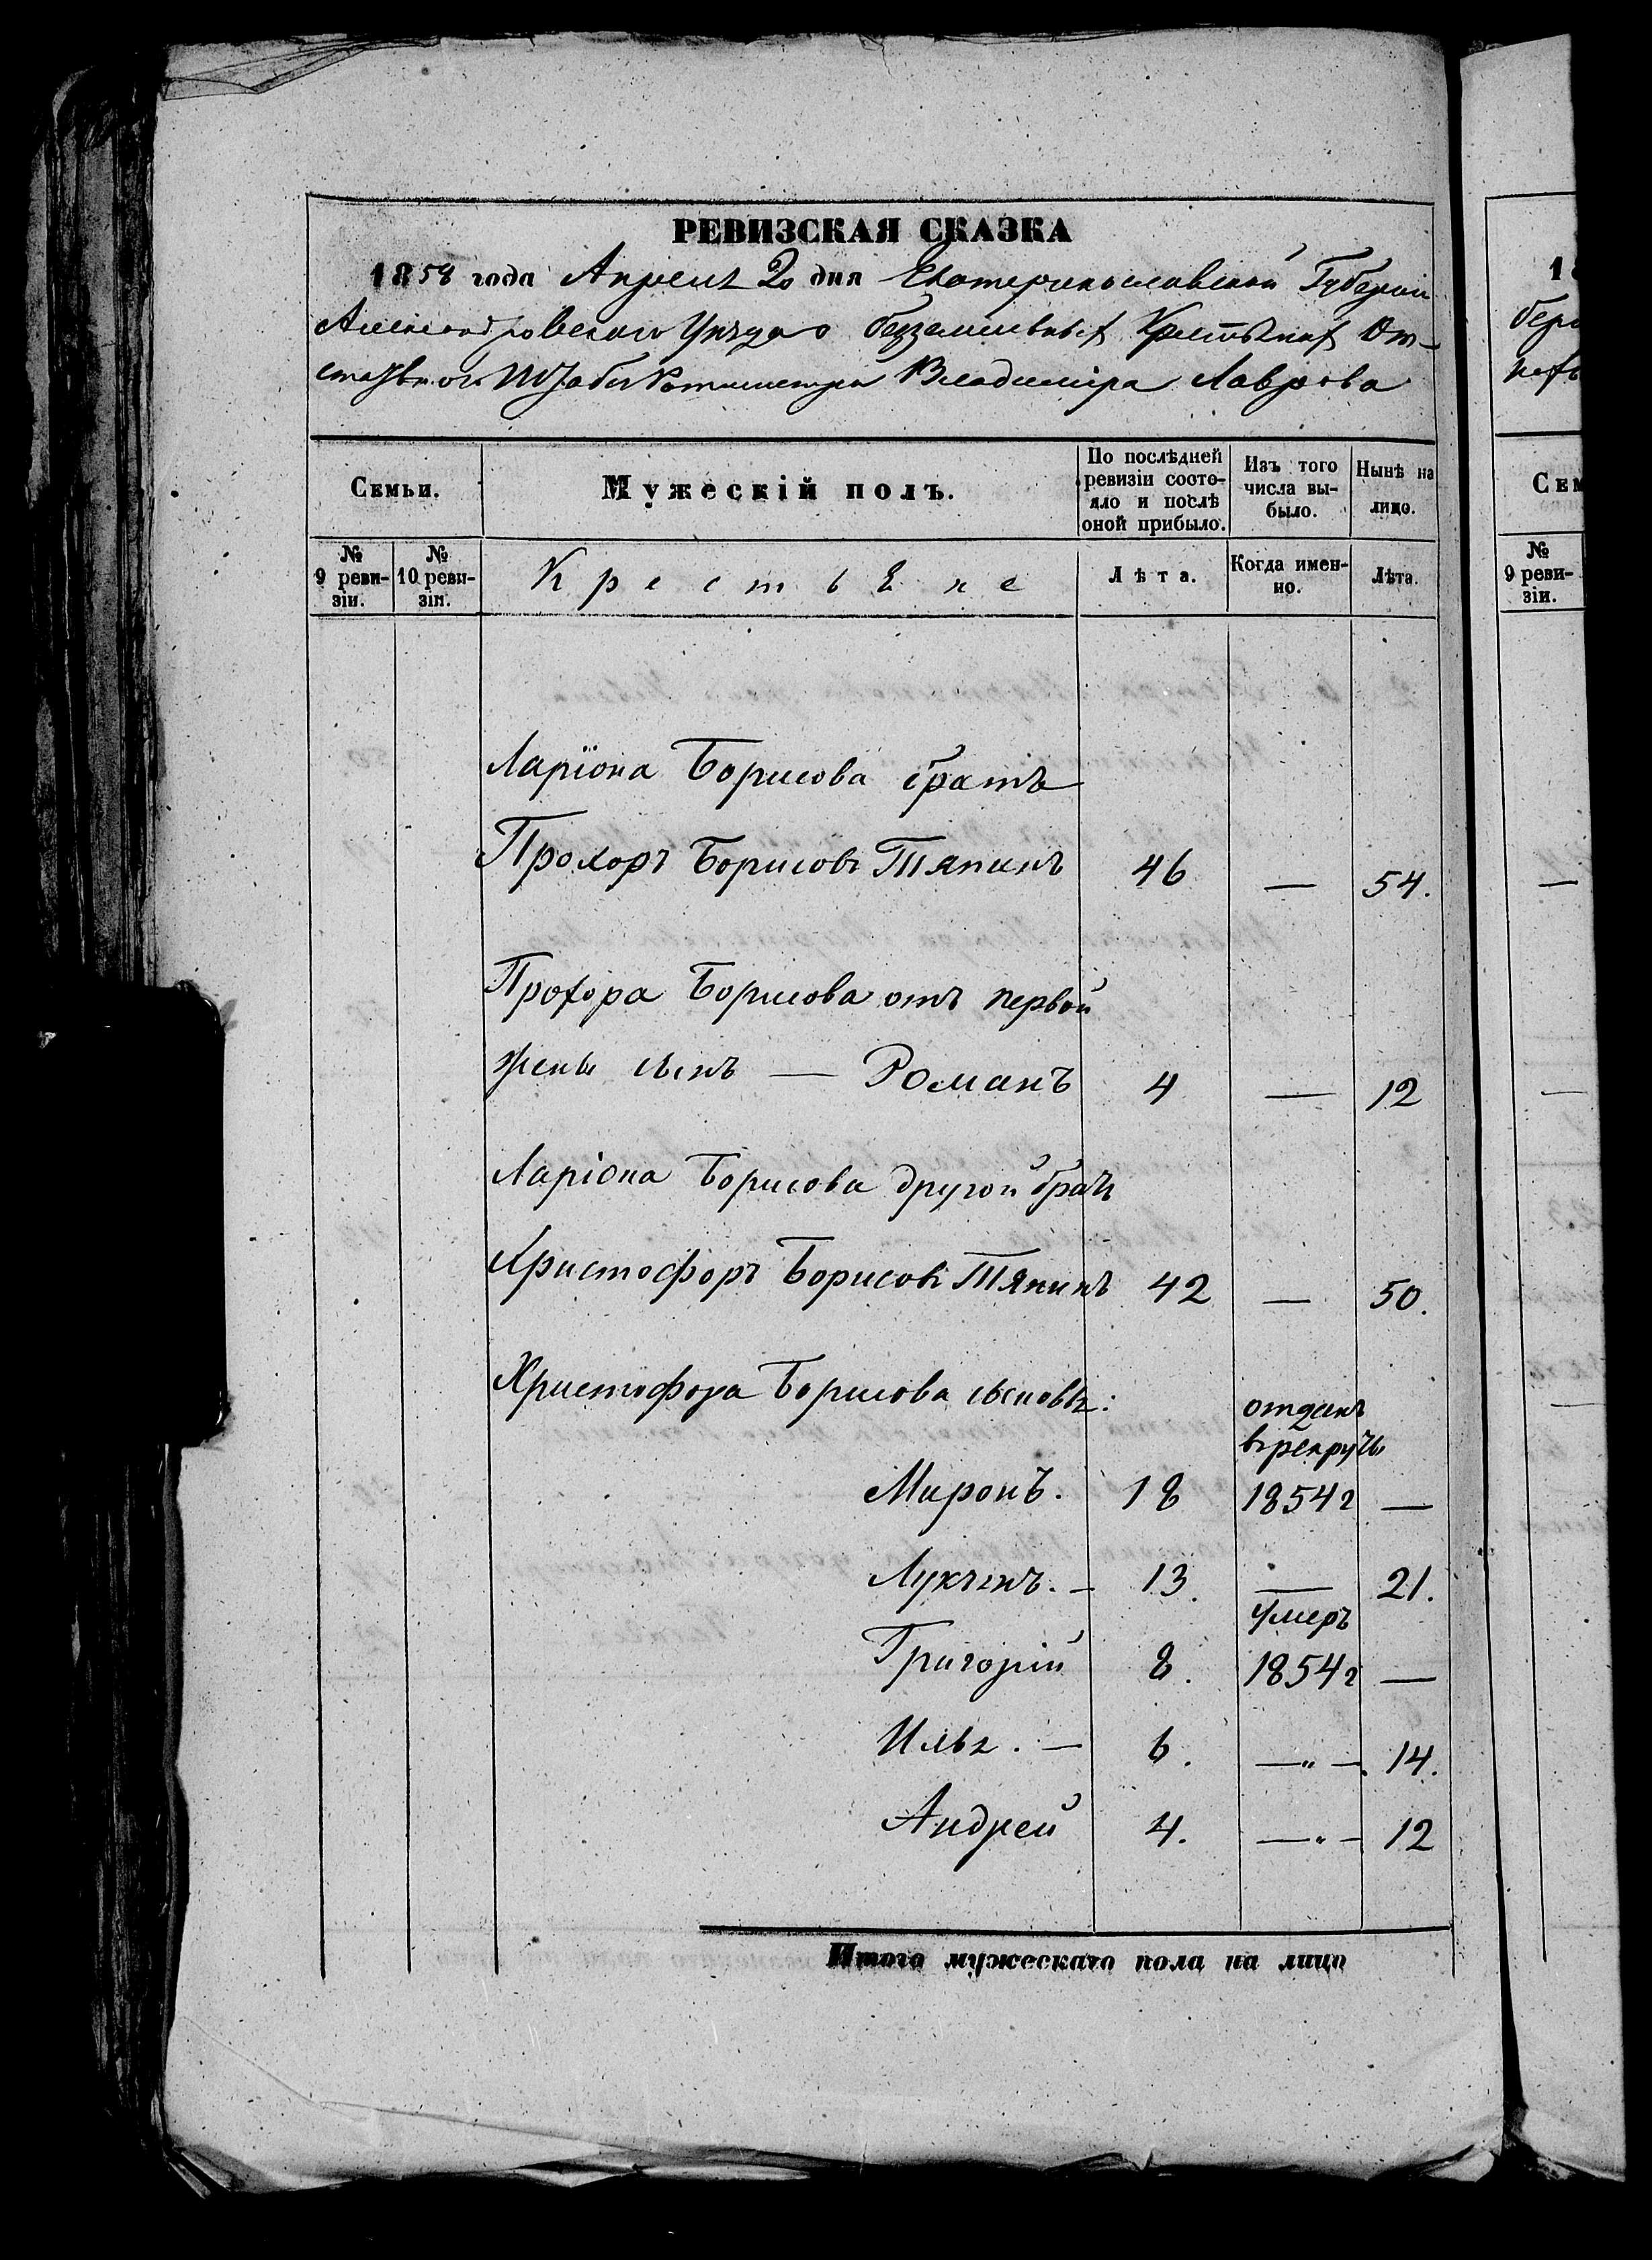 РЕВИЗСКАЯ СКАЗКА
1858 года Апреля 2 дня Екатеринославской Губернии
Александровского Уѣзда о безземельныхъ Крестьянах От-
ставного Штабсъ Ротмистра Владиміра Лаврова
Семьи.
Мужескій полъ.
По послѣдней ревизіи состо-
яло и послѣ
оной прибыло.
Изъ того
числа вы-
было.
Нынѣ на
лицо.
№
9 реви-
зіи.
№
10 реви-
зіи.
Крестьяне
Лѣта.
Когда имен-
но.
Лѣта.
Ларіона Борисова братъ
Прохоръ Борисовъ Тяпинъ 46 — 54.
Прохора Борисова отъ первой
жены сынъ — Романъ 4 — 12
Ларіона Борисова другой братъ
Христофоръ Борисовъ Тяпинъ 42 — 50.
Христофора Борисова сыновья:
отданъ
въ рекруты
Миронъ. 18 1854г —
Лукъянъ. — 13. — 21.
умеръ
Григорій 8. 1854г —
Илья. — 6. —"— 14.
Андрей 4. —"— 12
Итого мужескаго пола на лицо
1
бер
нахъ
Сем
№
9 реви-
зіи.